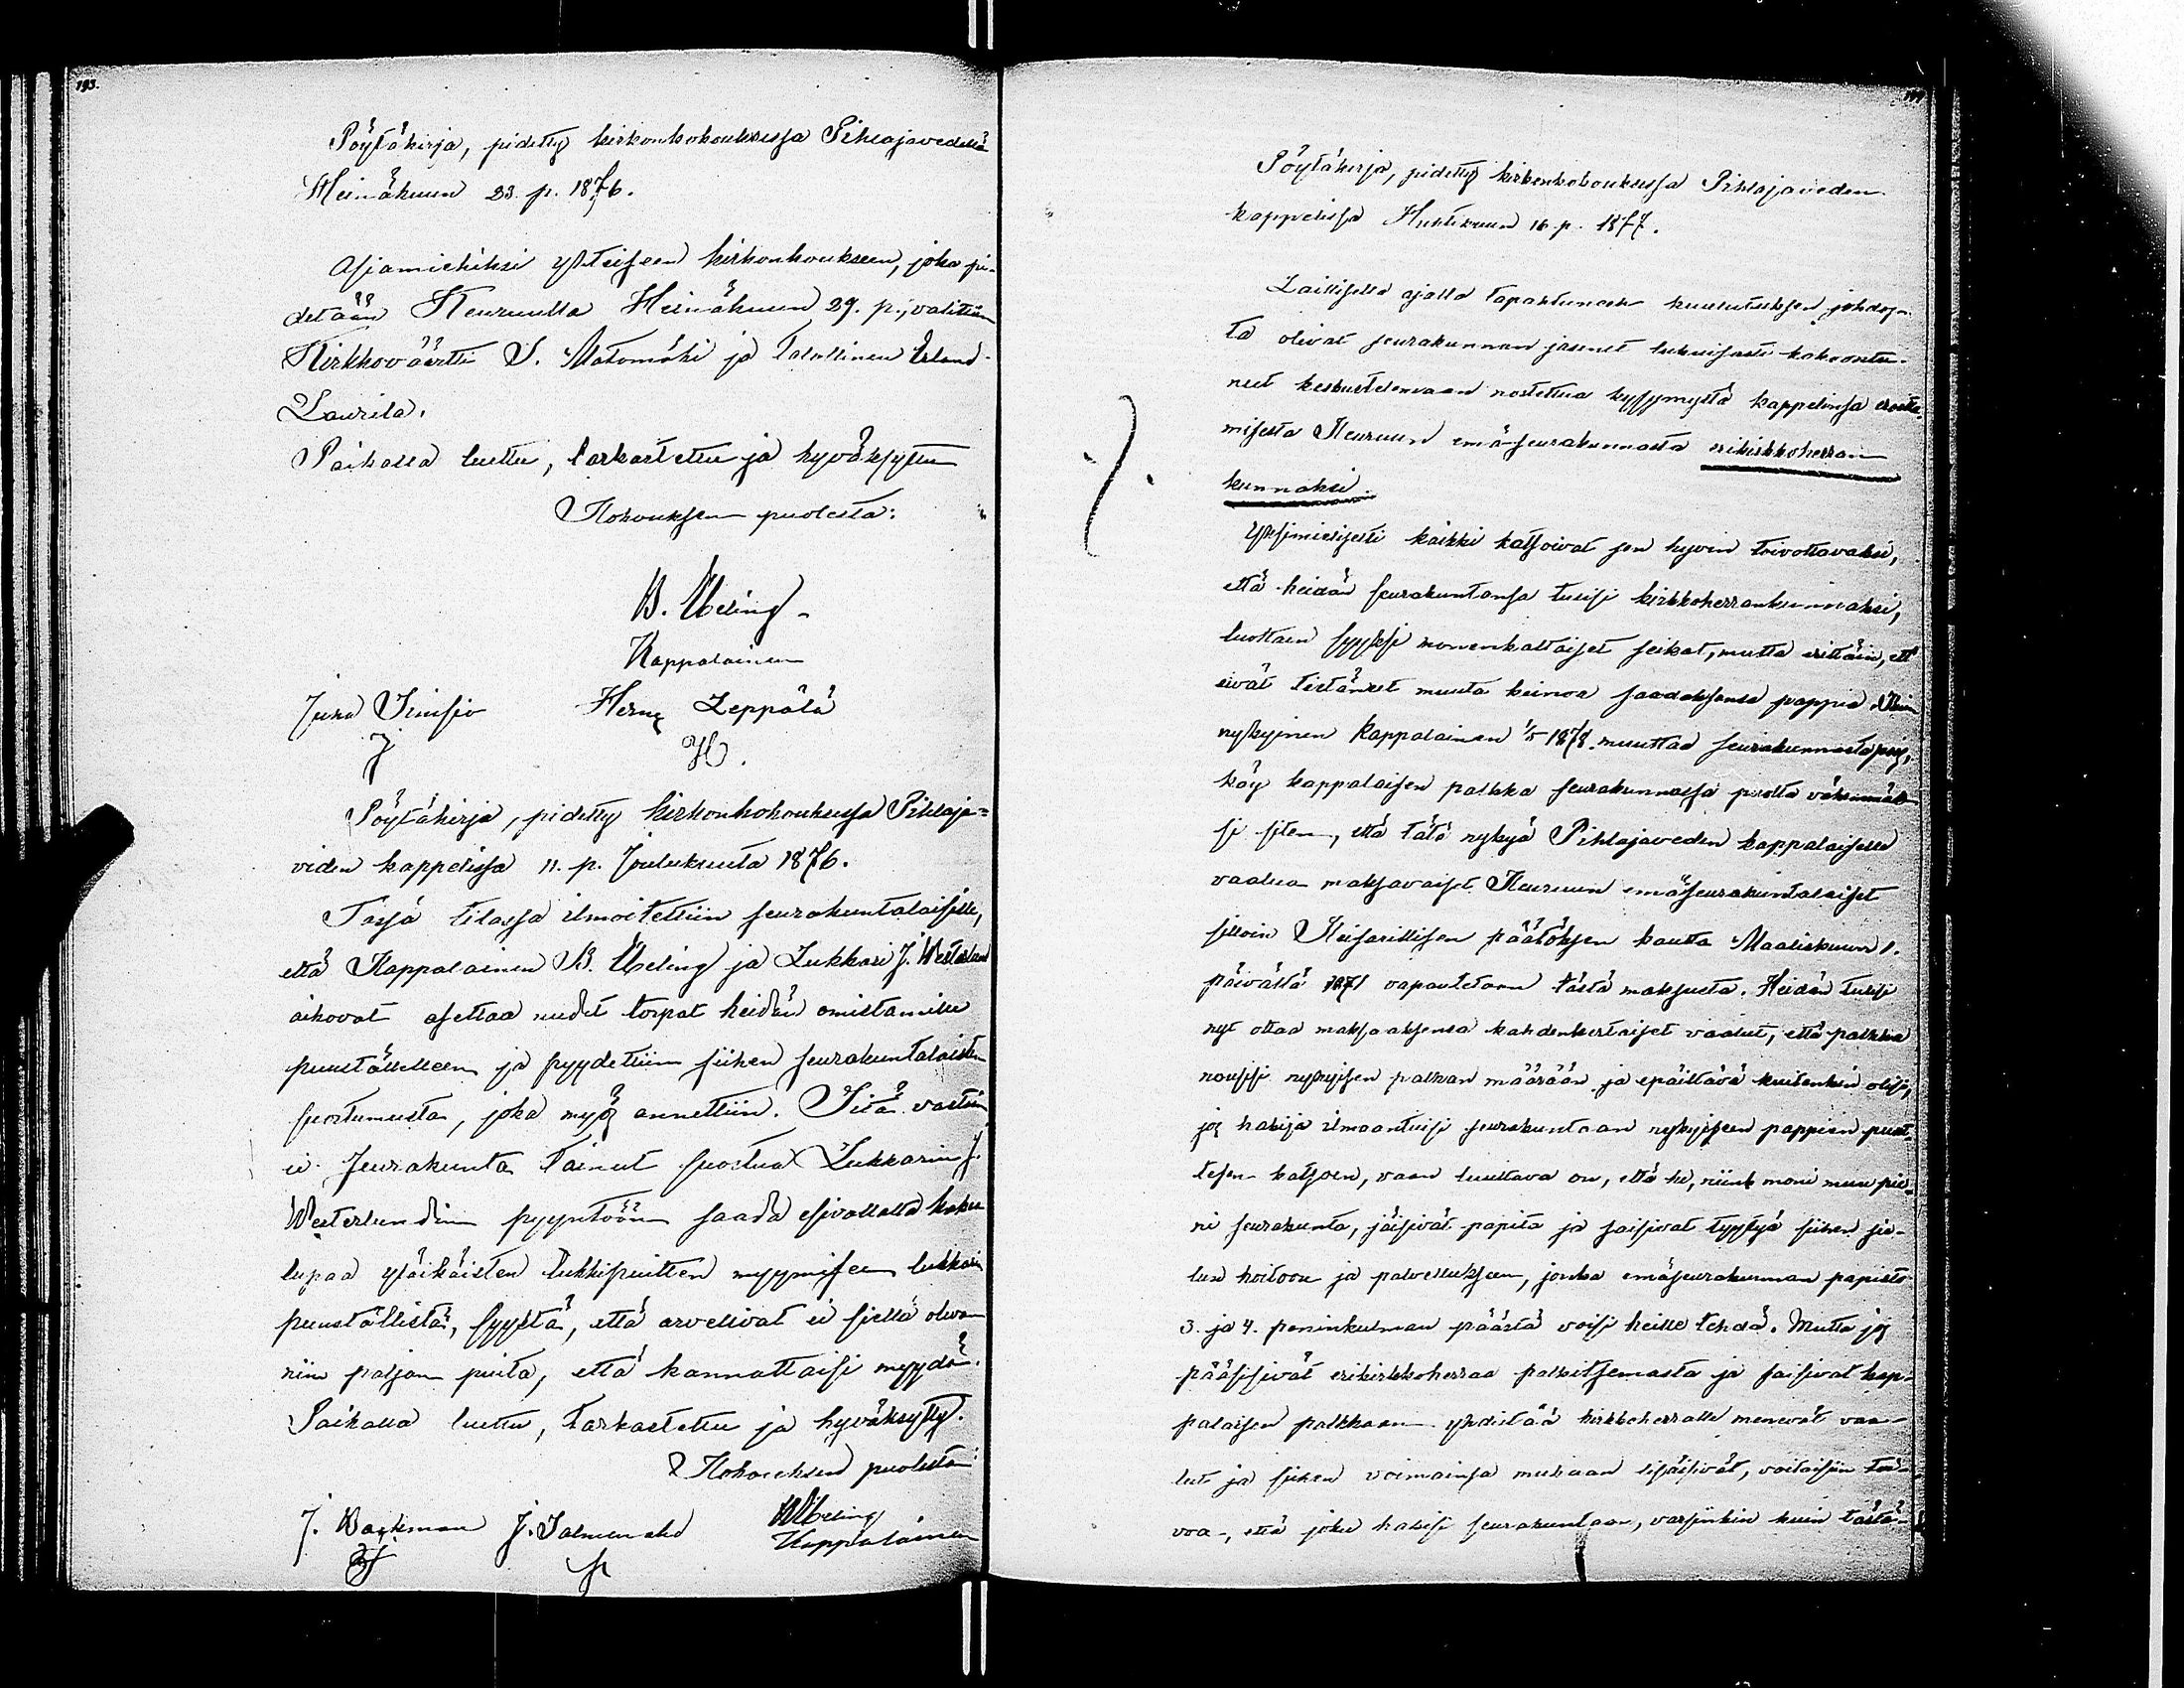 193.
Pöytäkirja, pidetty kirkonkokouksessa Pihlajavedellä
Heinäkuun 23. p. 1876.
Asjamiehiksi yhteiseen kirkonkoukseen, joka pi-
detään Keuruulla Heinäkuun 29. p., valittiin
Kirkkoväärtti S. Matomäki ja talollinen Erland
Laurila.
Paikalla luettu, tarkastettu ja hyväksytty
Kokouksen puolesta:
B. Ebeling
Kappalainen
Juha Herm Leppälä
Pöytäkirja, pidetty kirkonkokouksessa Pihlaja-
veden kappelissa 11. p. Joulukuuta 1876.
Tässä tilassa ilmoitettiin seurakuntalaisille,
että Kappalainen B. Ebeling ja Lukkari J. Westerlund
aikovat asettaa uudet torpat heidän omistamille
puuställelleen ja pyydettiin siihen seurakuntalaisten
suostumusta, joka myös annettiin. Sitä vastoin
ei seurakunta tainut suostua Lukkarin J.
Westerlundin pyyntöön saada esivallalta hakea
lupaa yläikäisten tukkipuitten myymiseen lukkarin
puuställistä, syystä, että arvelivat ei siellä olevan
niin paljon puita, että kannattaisi myydä.
Paikalla luettu, tarkastettu ja hyväksytty.
Kokouksen puolesta:
J. Backman J. Salmenaho B Ebeling
Kappalainen
Pöytäkirja, pidetty kirkonkokouksessa Pihlajaveden
kappelissa Huhtikuun 16. p. 1877.
Laillisella ajalla tapahtuneen kuulutuksen johdos-
ta olivat seurakunnan jäsenet lukuisasti kokoontu-
neet keskustelemaan nostettua kysymystä kappelinsa eroitta-
misesta Keuruun emäseurakunnasta erikirkkoherran
kunnaksi.
Yksimielisesti kaikki katsoivat sen hyvin toivottavaksi,
että heidän seurakuntansa tulisi kirkkoherrankunnaksi,
luottaen syyksi monenkaltaiset seikat, mutta erittäin, ett'
eivät tietäneet muuta keinoa saadaksensa pappia. Kun
nykyinen Kappalainen 1/5 1878 muuttaa seurakunnasta pois,
käy kappalaisen palkka seurakunnassa puolta vähemmäk-
si siten, että tätä nykyä Pihlajaveden kappalaiselle
vaalua maksavaiset Keuruun emäseurakuntalaiset
silloin Keisarillisen päätöksen kautta Maaliskuun 1.
päivästä 1871 vapautetaan tästä maksusta. Heidän tulisi
nyt ottaa maksaaksensa kahdenkertaiset vaalut, että palkka
nousisi nykyisen palkan määrään ja epäiltävä kuitenkin olisi,
jos hakija ilmaantuisi seurakuntaan nykyiseen pappien puut-
teesen katsoen, vaan luultava on, että he, niinkuin moni muu pie-
ni seurakunta, jäisivät papita ja saisivat tyytyä siihen sie-
lun hoitoon ja palvellukseen, jonka emäseurakunnan papisto
3. ja 4. peninkulman päästä voisi heille tehdä. Mutta jos
pääsisivät erikirkkoherraa palkitsemasta ja saisivat kap-
palaisen palkkaan yhdistää kirkkoherralle menevät vaa-
lut ja siihen voimainsa mukaan lisäisivät, voitaisiin toi-
voa, että joku hakisi seurakuntaan, varsinkin kuin tästä